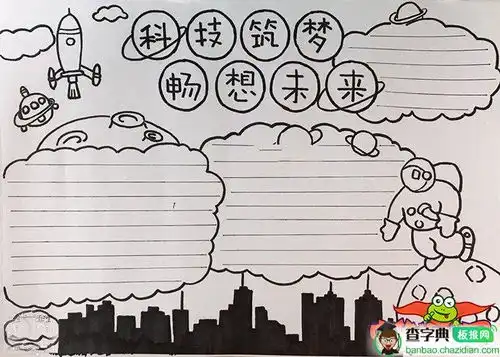 科技筑梦
畅想未来
查字典 板报网
banbao.chazidian.com